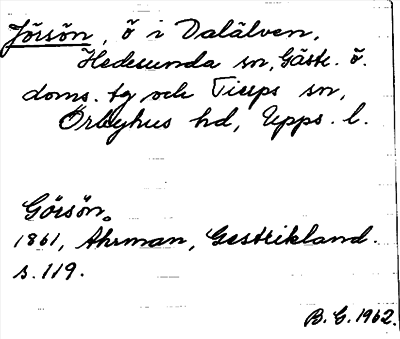 Jörsön, ö i Dalälven,
Hedesunda sn, Gästr. ö.
doms. tg och Tierps sn,
Örbyhus hd, Upps. l.
Görsön.
1861, Ahrman, Gestrikland.
s. 119.
B. G. 1962.